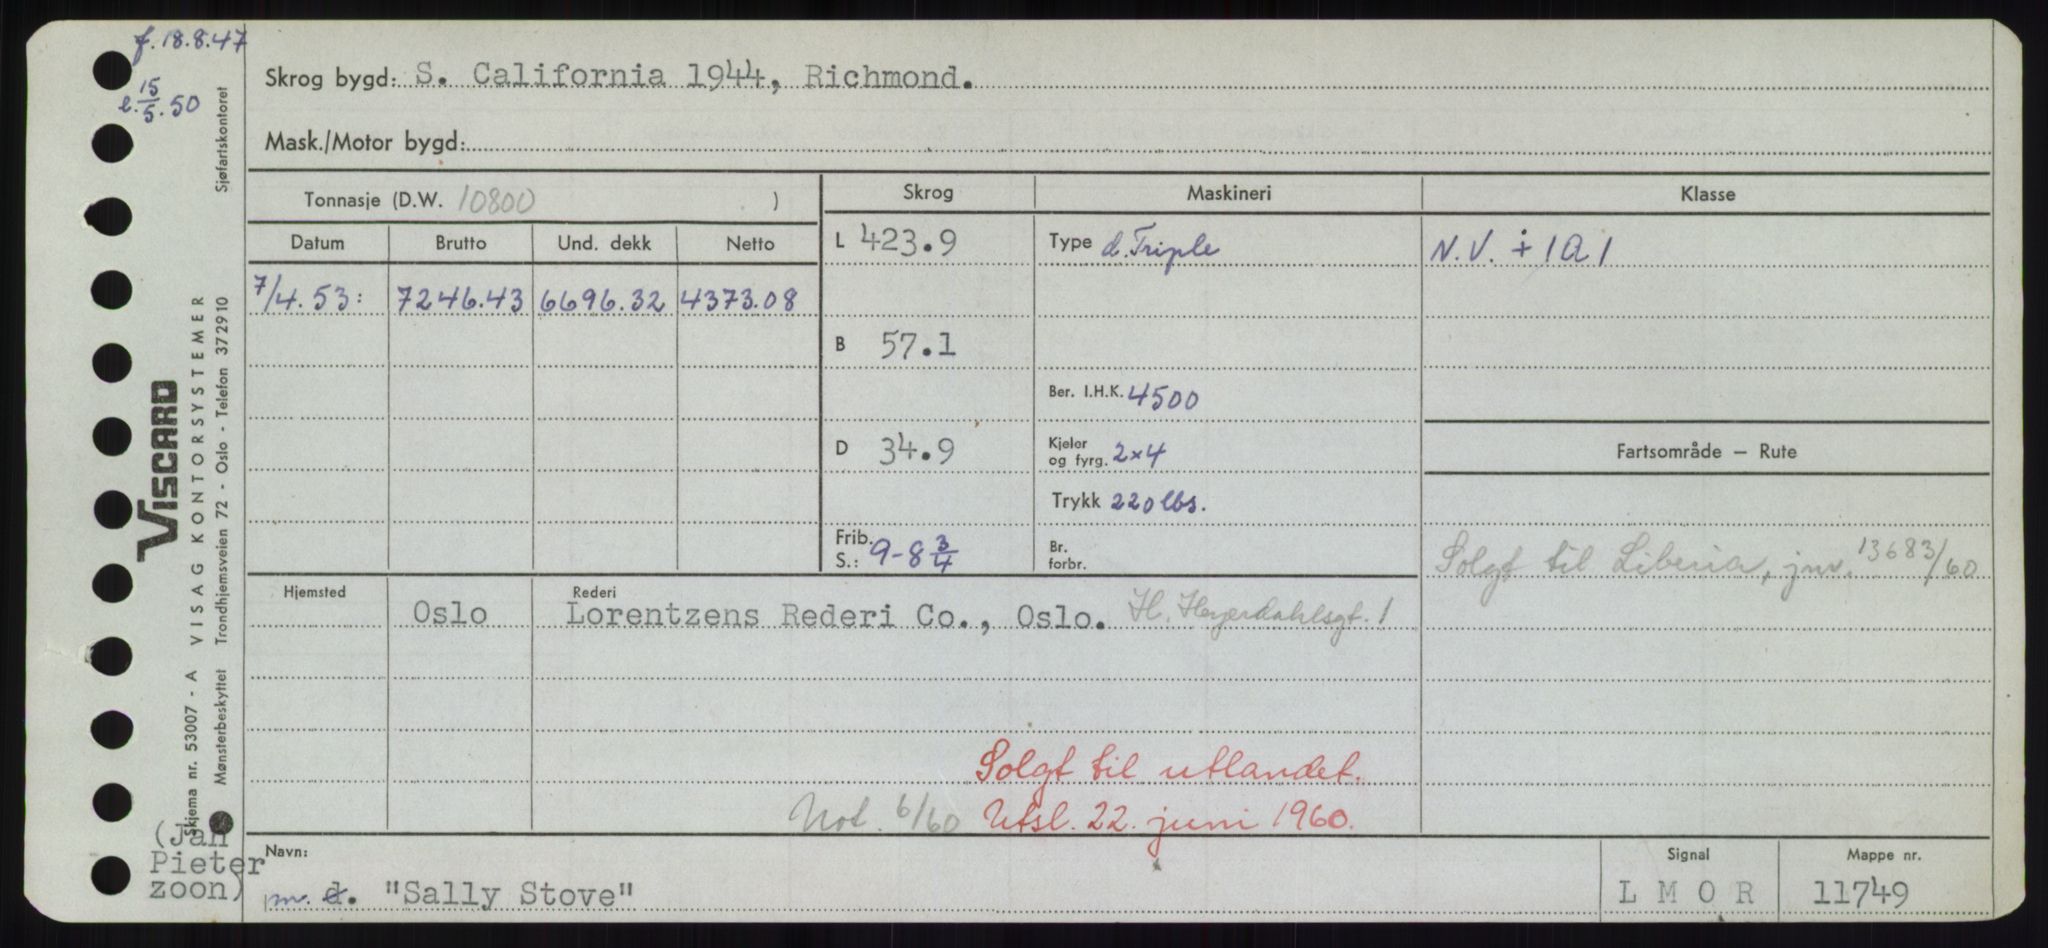 f. 18.8.47
e. 15/5.50
Skrog bygd: S. California 1944, Richmond.
Mask./Motor bygd:
Tonnasje (D.W. 10800 )
Skrog
Maskineri
Klasse
Datum
Brutto
Und. dekk
Netto
L 423.9
Type d. Triple
N.V. ⨥ 1A1
7/4.53: 7246.43 6696.32 4373.08
B 57.1
Ber. I.H.K. 4500
D 34.9
Kjeler og fyrg. 2x4
Fartsområde — Rute
Trykk 220 lbs.
Frib. S.: 9-8 3/4
Br. forbr.
Solgt til Liberia, jnr. 13683/60
Hjemsted
Oslo
Rederi
Lorentzens Rederi Co., Oslo. H. Heyerdahlsgt. 1
Solgt til utlandet.
Not. 6/60 Utsl. 22. juni 1960.
Navn:
"Sally Stove"
Signal
L M O R
Mappe nr.
11749
(Jan
Pieter
zoon)
VISCARD
VISAG KONTORSYSTEMER
Skjema nr. 53007 - A
Mønsterbeskyttet
Trondhjemsveien 72 - Oslo - Telefon 372910
Sjøfartskontoret